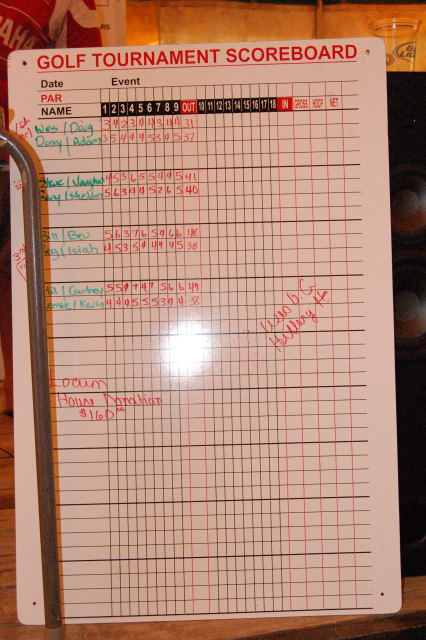 GOLF TOURNAMENT SCOREBOARD
Date Event
PAR
NAME 1 2 3 4 5 6 7 8 9 OUT 10 11 12 13 14 15 16 17 18 IN GROSS HDCP NET
1st
Wes / Doug 31
/ Adam 3 5 4 4 4 5 3 4 5 37
/ Vaughn 4 5 3 6 5 5 4 5 4 41
/ Sheldon 5 6 3 4 4 5 2 6 5 40
/ Bev 5 6 3 7 6 5 4 6 6 48
/ Isiah 4 5 3 5 4 4 4 4 5 38
/ Courtney 5 5 4 7 4 7 5 6 6 49
/ Kevin 4 4 4 5 5 5 3 4 4 38
Hillary H.
Locum
House Donation
$160